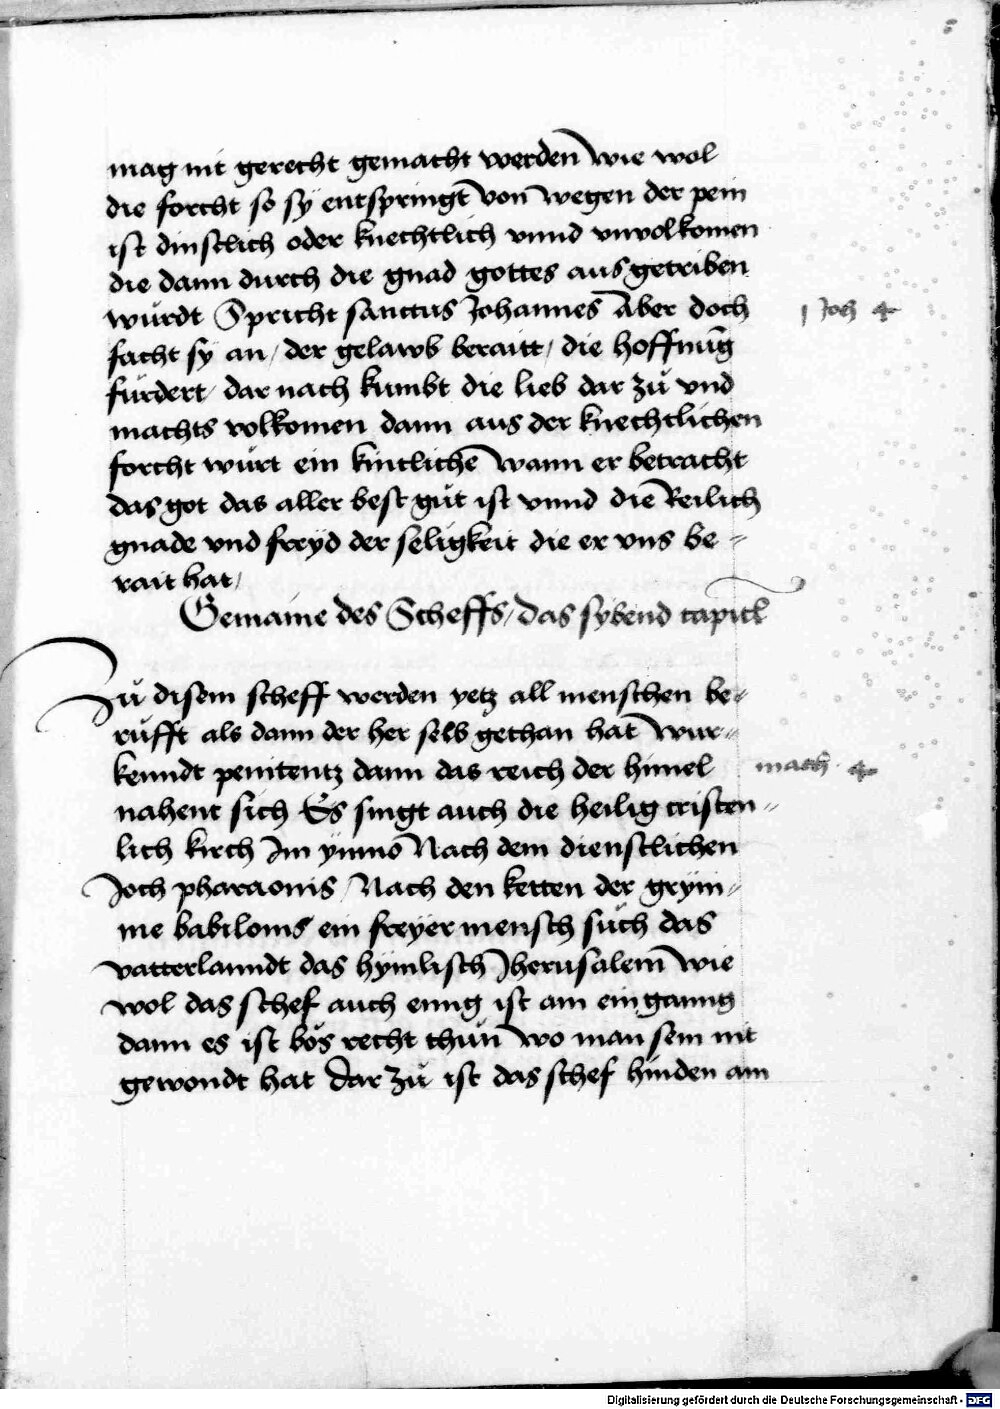 6
mag nit gerecht gemacht werden wie wol
die forcht so sÿ entspringt von wegen der pein
ist dinstlich oder knechtlich vnnd vnvolkomen
die dann durch die gnad gottes aus getriben
würdt Spricht sanctus Johannes Aber doch
1 Joh 4
facht sÿ an / der gelawb beraitt / die hoffnūg
fürdert / dar nach kumbt die lieb dar zů vnd
machts volkomen dann aus der knechtlichen
forcht würt ein kintliche wann er betracht
das got das aller best gůt ist vnnd die Reilich
gnade vnd freÿd der seligkeit die er vns be=
rait hat /
Gemaine des Scheffs / das sÿbend capitl
Zů disem scheff werden yetz all menschen be=
růfft als dann der her selb gethan hat wur=
kenndt penitentz dann das reich der himel
math 4
nahent sich Es singt auch die heilig cristen=
lich kirch Im ÿmno Nach dem dienstlichen
Joch pharaonis / Nach den ketten der grym=
me babilonis ein freÿer mensch sůch das
vatterlanndt das hÿmlisch Jherusalem wie
wol das schef auch enng ist am eingannng
dann es ist bös recht thůn wo man sein nit
gewondt hat Dar zů ist das schef hinden am
Digitalisierung gefördert durch die Deutsche Forschungsgemeinschaft - DFG